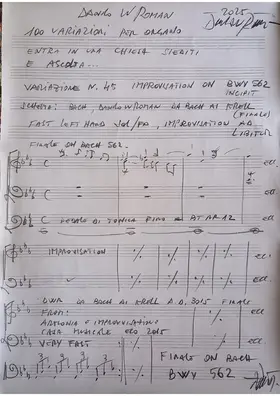 DANILO W ROMAN
2025
100 VARIAZIONI PER ORGANO
ENTRA IN UNA CHIESA SIEDITI
E ASCOLTA...
VARIAZIONE N. 45 IMPROVISATION ON BWV 562
INCIPIT
BACH, DANILO W ROMAN DA BACH AI KROLL
(FINALE)
FAST LEFT HAND SOL/FA, IMPROVISATION AD
LIBITUM
FINALE ON BACH 562
ecc.
ecc.
C PEDALE DI TONICA FINO A BATT AR 12 ecc.
IMPROVISATION ecc.
ecc.
DWR DA BACH AI KROLL A.D. 3015 FINALE
FROM:
ARMONIA E IMPROVVISATIVO
CASA MUSICALE ECO 2015
VERY FAST
3 3 3 3
FINALE ON BACH
BWV 562